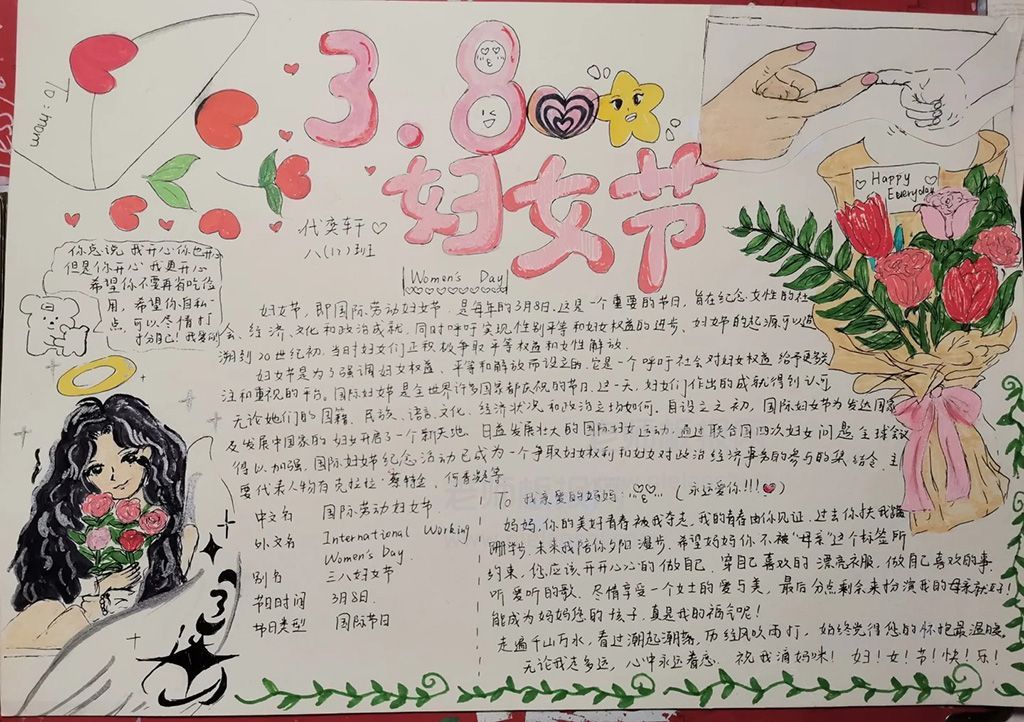 To: mom
3.8
妇女节
Happy
Everyday
代奕轩
八(17)班
Women's Day
你总说 我开心你也开心
但是你开心 我更开心
希望你不要再省吃俭
用,希望你自私一
点,可以尽情打
扮自己!
妇女节,即国际劳动妇女节,是每年的3月8日.这是一个重要的节日,旨在纪念女性的社
会、经济、文化和政治成就,同时呼吁实现性别平等和妇女权益的进步、妇女节的起源可以追
溯到20世纪初,当时妇女们正积极争取平等权益和女性解放.
妇女节是为了强调妇女权益、平等和解放而设立的.它是一个呼吁社会对妇女权益给予更多关
注和重视的平台。国际妇女节是全世界许多国家都庆祝的节日.这一天,妇女们作出的成就得到认可
无论她们的国籍、民族、语言、文化、经济状况和政治立场如何.自设立之初,国际妇女节为发达国家
及发展中国家的妇女开启了一个新天地.日益发展壮大的国际妇女运动,通过联合国四次妇女问题全球会议
得以加强.国际妇女节纪念活动已成为一个争取妇女权利和妇女对政治经济事务的参与的集结令,主
要代表人物有克拉拉·蔡特金,何香凝等
中文名 国际劳动妇女节
外文名 International Working
Women's Day.
别名 三八妇女节
节日时间 3月8日.
节日类型 国际节日
To 我亲爱的妈妈: (永远爱你!!!)
妈妈,你的美好青春被我夺走,我的青春由你见证.过去你扶我蹒
跚学步,未来我陪你夕阳漫步,希望妈妈你不被"母亲"这个标签所
约束,您应该开开心心的做自己.穿自己喜欢的漂亮衣服,做自己喜欢的事.
听爱听的歌.尽情享受一个女士的爱与美,最后分点剩余来扮演我的母亲就好!
能成为妈妈您的孩子,真是我的福气呢!
走遍千山万水,看过潮起潮落,历经风吹雨打,始终觉得您的怀抱最温暖.
无论我走多远,心中永远眷恋 祝我滴妈咪!妇!女!节!快!乐!
3